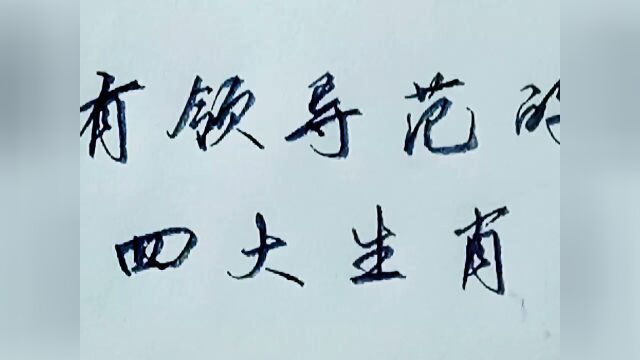 有领导范的
四大生肖